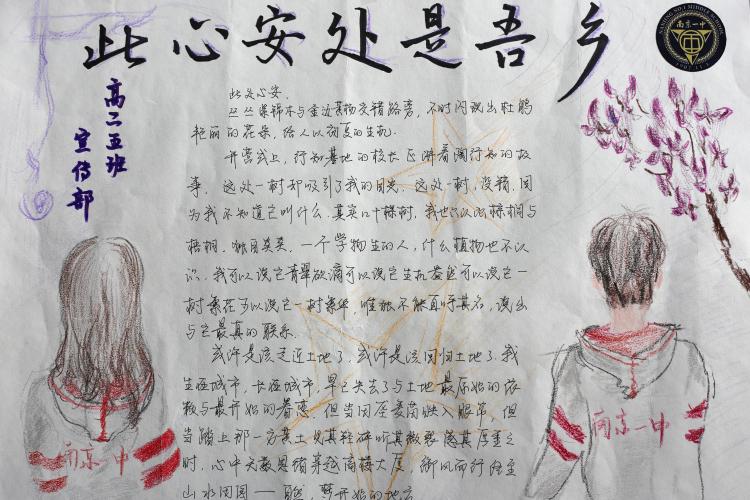 此心安处是吾乡
NANJING NO.1 MIDDLE SCHOOL
南京一中
1907
高二五班
宣传部
此处心安.
丛丛灌锦木与金边黄杨交错路旁，不时闪现出杜鹃
艳丽的花朵，给人以初夏的生机.
开营式上，行知基地的校长正讲着陶行知的故
事，这处一树却吸引了我的目光.这处一树，没错.因
为我不知道它叫什么.其实口十棵树，我也只认出梧桐与
梧桐.一个学物生的人，什么植物也不认
识.我可以说它青翠欲滴可以说它生机盎然可以说它一
树繁花可以说它一树繁华，唯独不能直呼其名，说出
与它最真的联系.
或许是该走近土地了，或许是该回归土地了.我
生在城市，长在城市，早已失去了与土地最原始的依
赖与最开始的眷恋.但当田座麦茵映入眼帘，但
当踏上那一方黄土 其轻碎听其微 感其厚重之
时，心中无数思绪奔 高楼大厦，御风而行 至
山水田园——自然，梦开始的地方
南京一中
南京一中